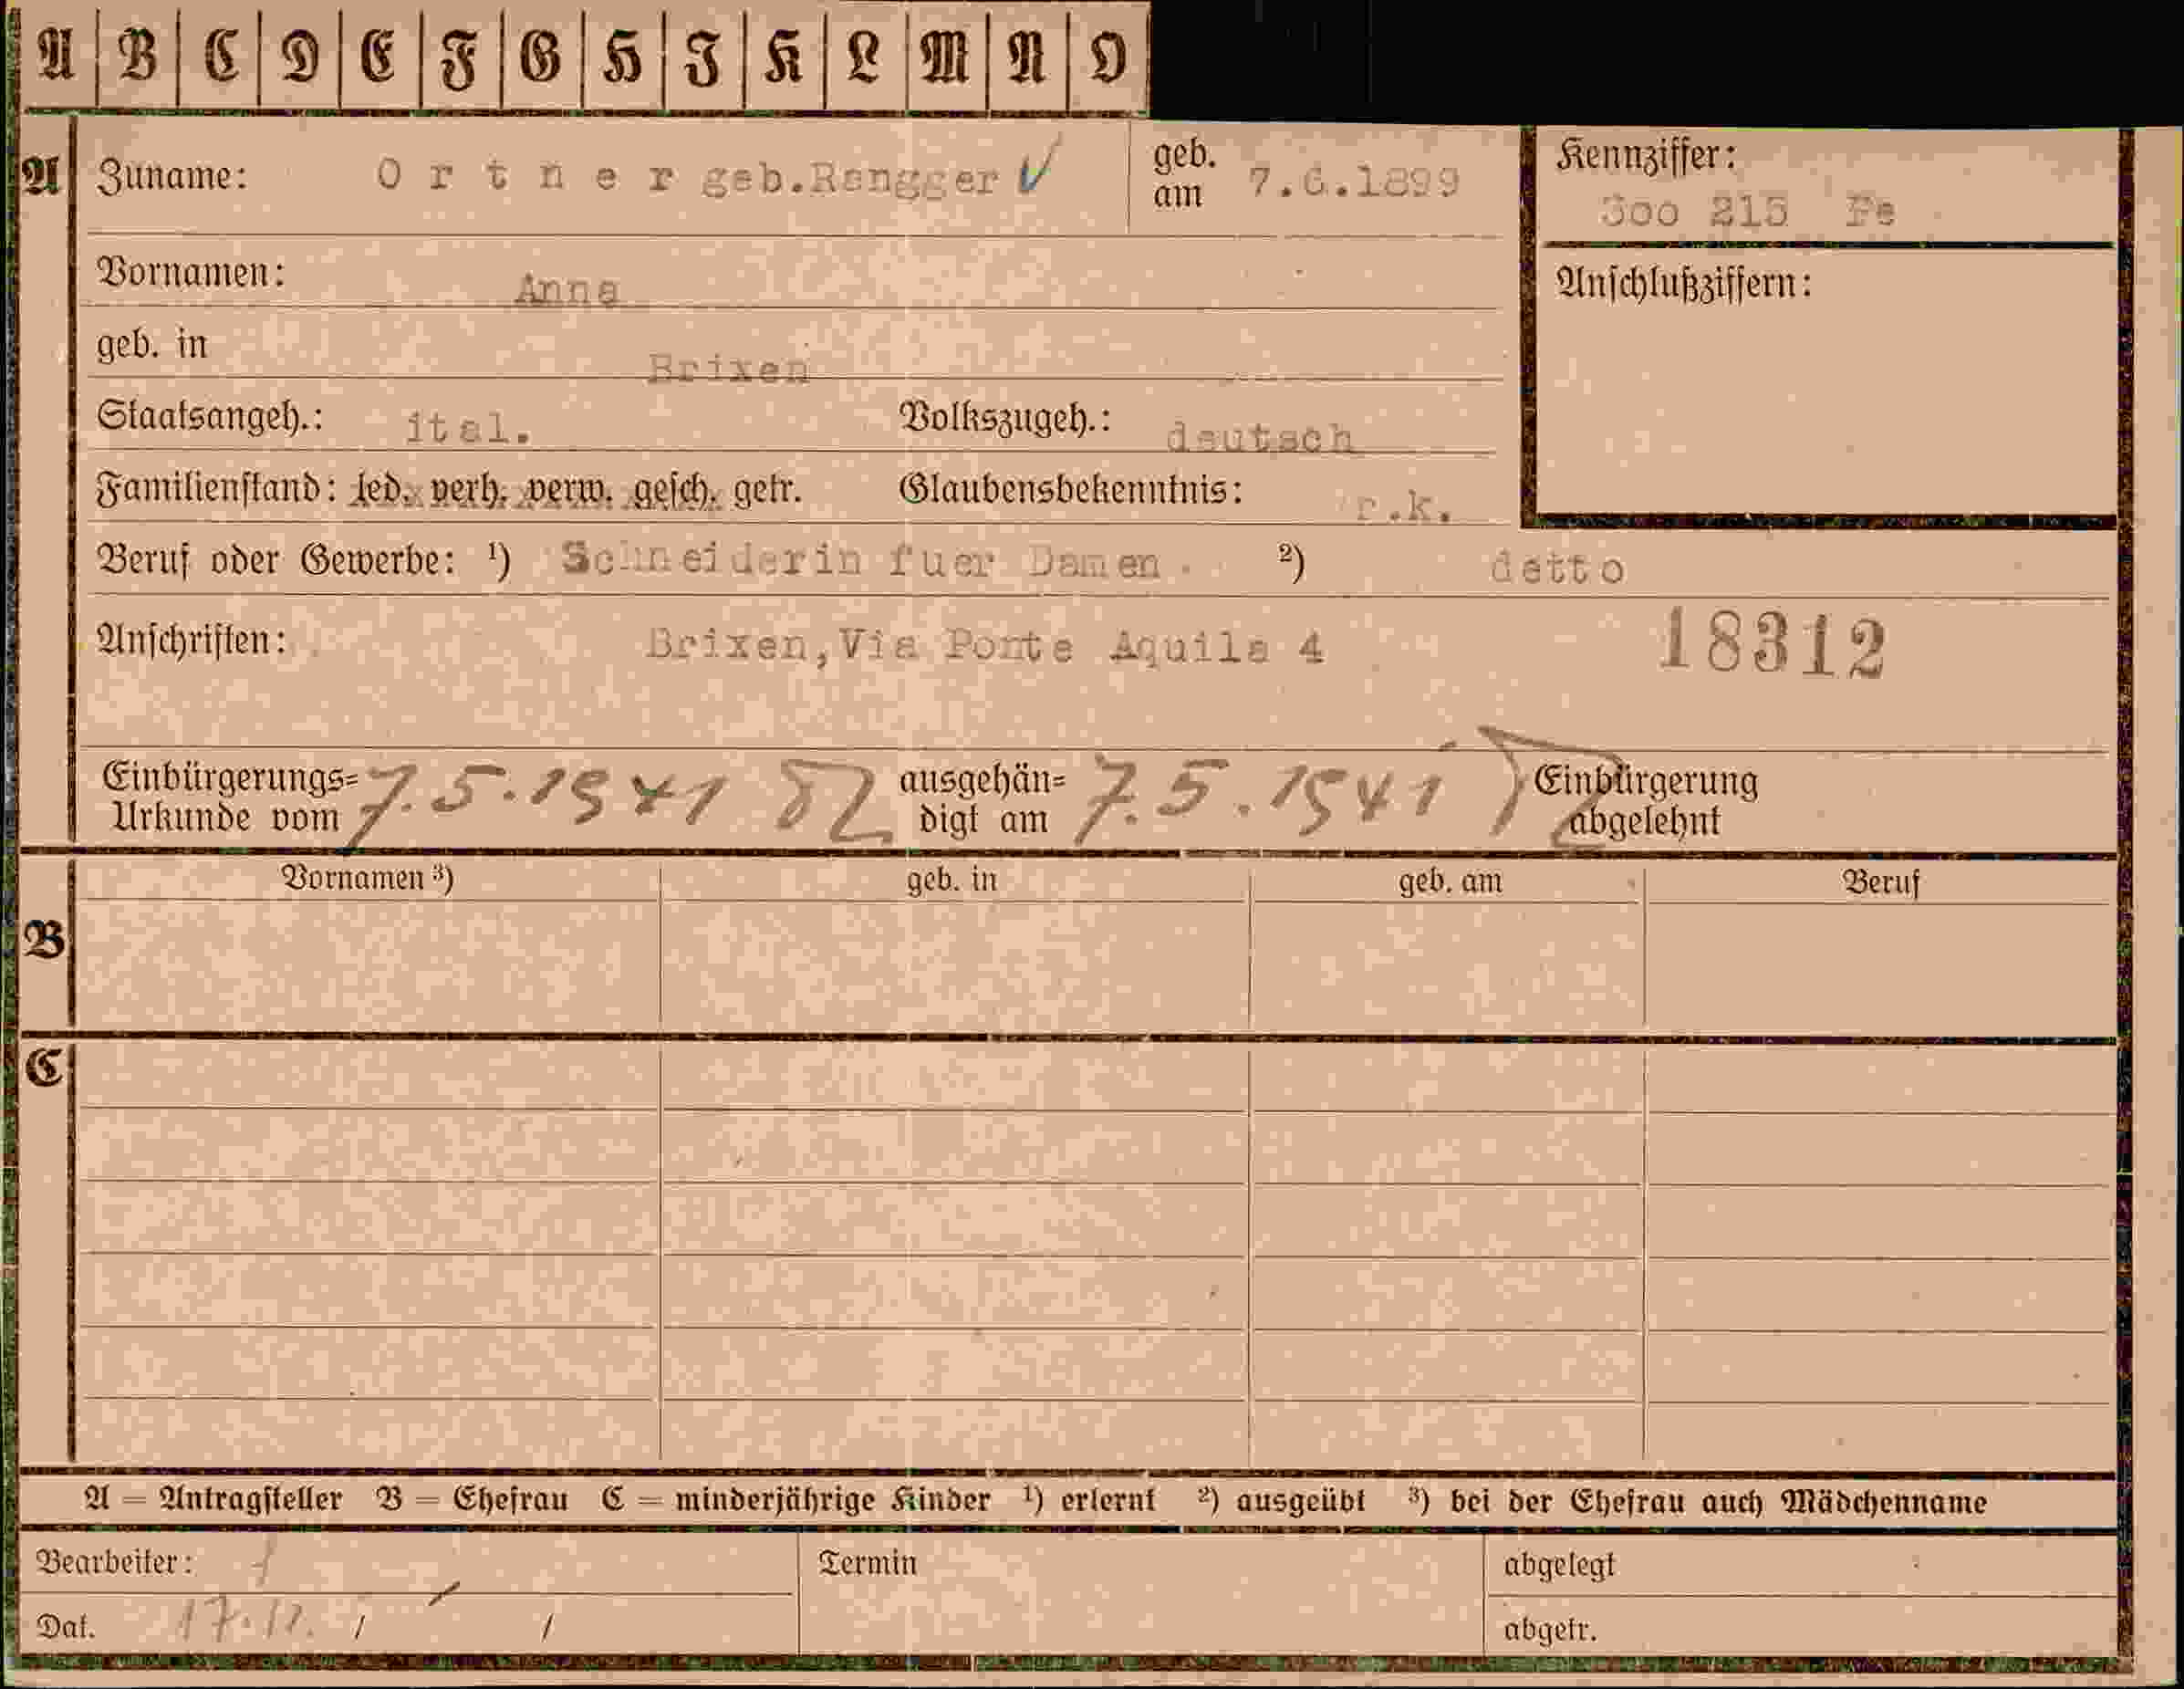 A B C D E F G H I K L M N O
A Zuname: O r t n e r geb.Rangger geb. am 7.6.1899
Kennziffer: 300 215 Fe
Vornamen: Anna
Anschlußziffern:
geb. in Brixen
Staatsangeh.: ital. Volkszugeh.: deutsch
Familienstand: led. verh. verw. gesch. getr. Glaubensbekenntnis: r.k.
Beruf oder Gewerbe: 1) Schneiderin fuer Damen. 2) detto
Anschriften: Brixen,Via Ponte Aquila 4 18312
Einbürgerungs= Urkunde vom 7.5.1941 ausgehän= digt am 7.5.1941 Einbürgerung abgelehnt
Vornamen 3) geb. in geb. am Beruf
B
C
A = Antragsteller B = Ehefrau C = minderjährige Kinder 1) erlernt 2) ausgeübt 3) bei der Ehefrau auch Mädchenname
Bearbeiter: Termin abgelegt
Dat. 17.12. / / abgetr.